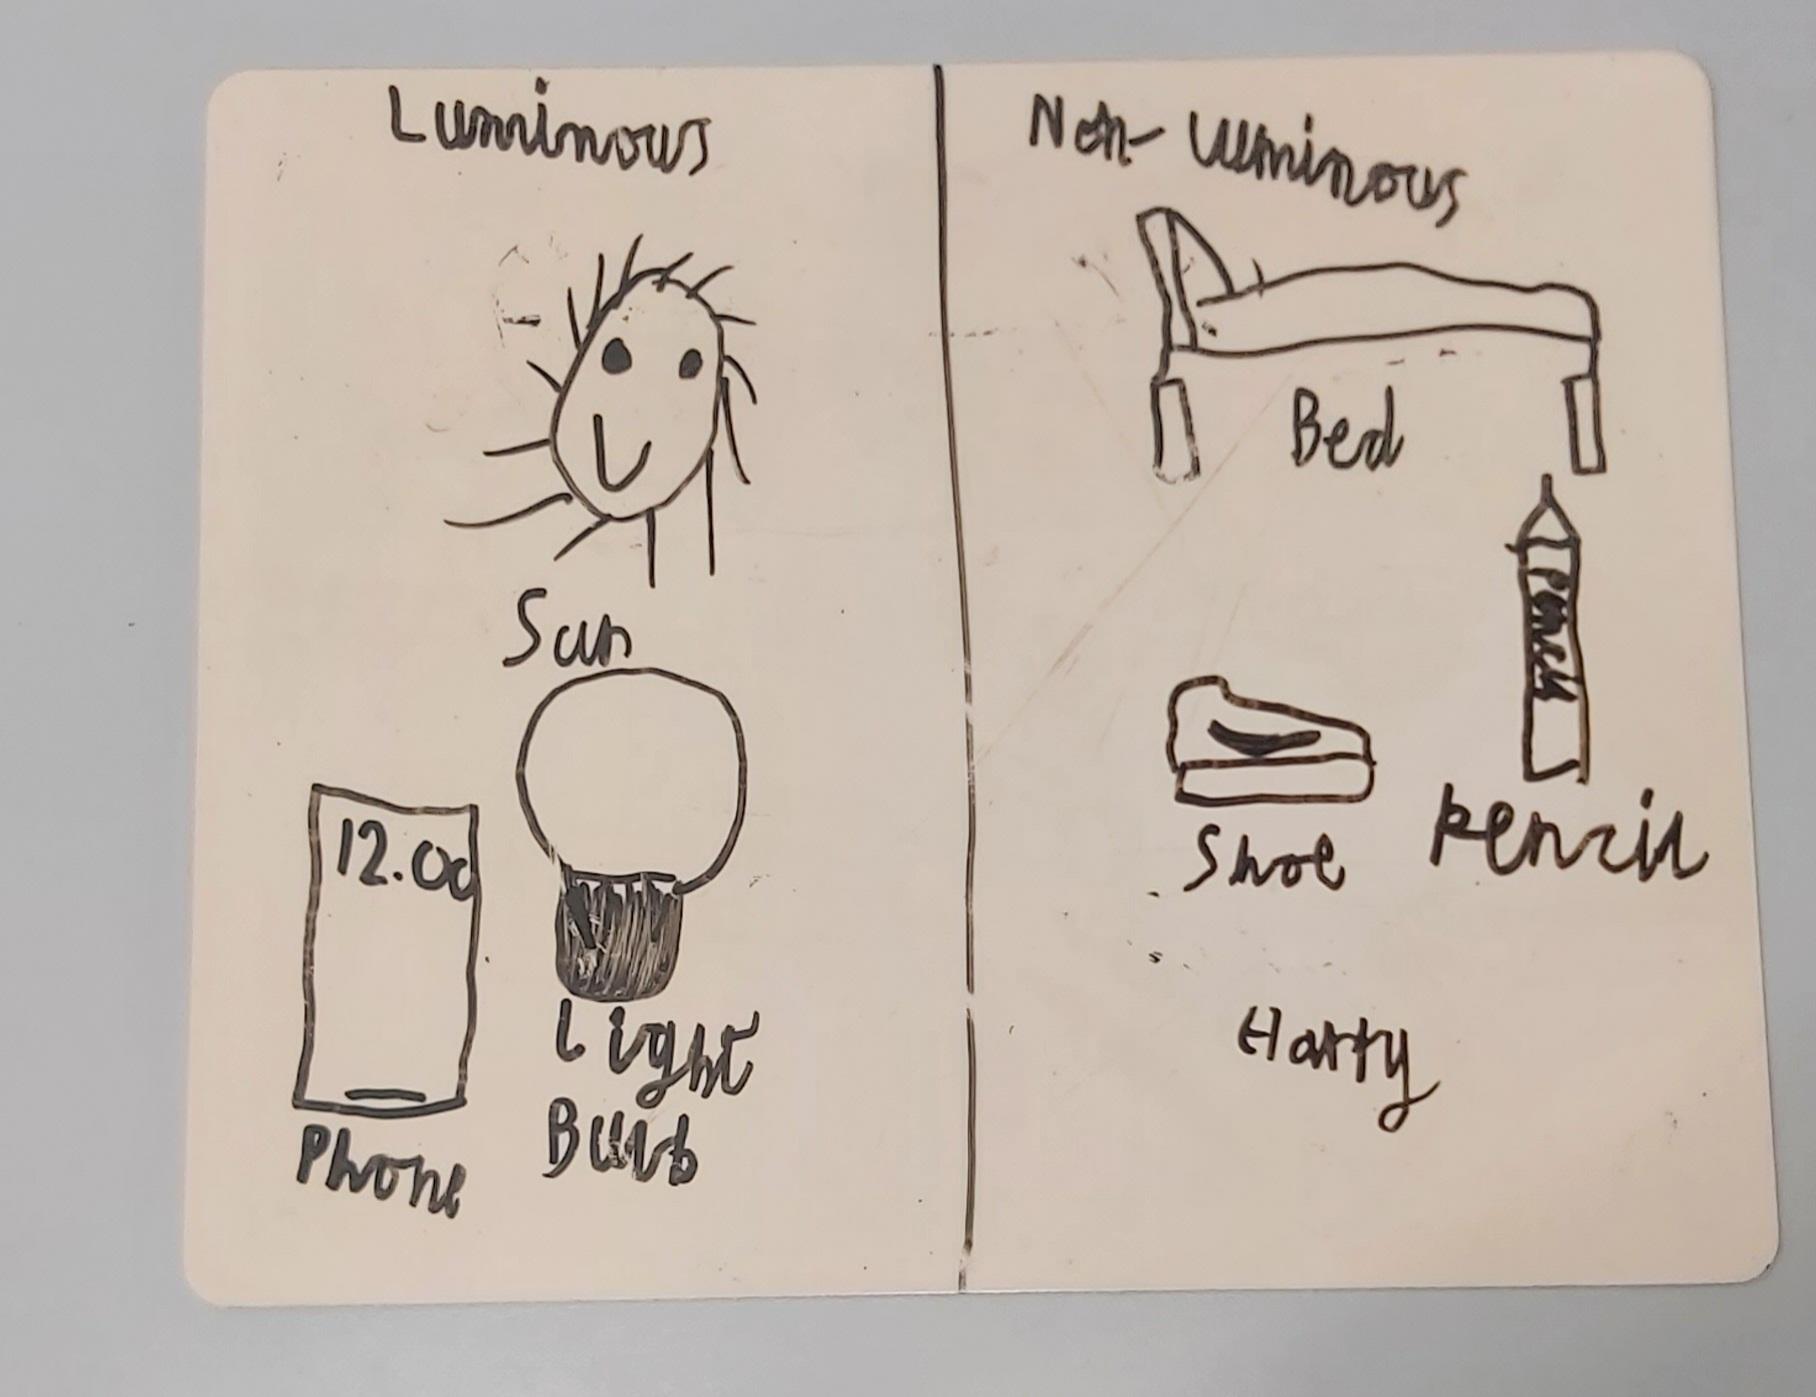 Luminous
Sun
12.00
Light
Bulb
Phone
Non-Luminous
Bed
Pencil
Shoe
Pencil
Harry